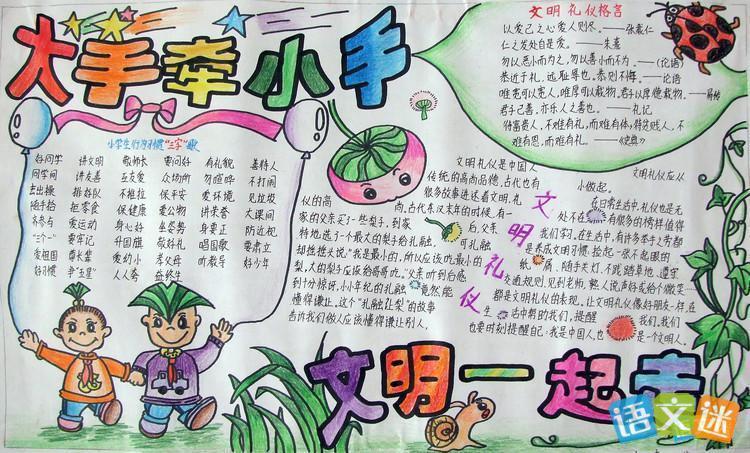 大手牵小手
文明礼仪格言
以爱己之心爱人则尽。——张载仁
仁之发处自是爱。——朱熹
勿以恶小而为之,勿以善小而不为。——《论语》
恭近于礼,远耻辱也。恭则不悔。——论语
唯宽可以宽人,唯厚可以载物,君子以厚德载物。——易传
君子己善,亦乐人之善也。——礼记
待富贵人,不难有礼,而难有体;待贫贱人,不
难有恩,而难有礼。
小学生行为习惯"三字"歌
好同学 讲文明 敬师长 要问好 有礼貌 善待人
同学间 讲友善 互友爱 众场所 勿喧哗 不打闹
进出操 排好队 不推拉 保平安 爱环境 见垃圾
随手拾 拒零食 保健康 爱公物 讲荣誉 大课间
齐参与 爱运动 身心好 坐姿势 身要正 防近视
"三个一" 要牢记 升国旗 敬好礼 唱国歌 要肃立
爱祖国 尊长辈 爱幼小 孝父母 听教导 好少年
好习惯 争"五星" 人人夸 益终生
文明礼仪
文明礼仪是中国人
传统的高尚品德,古代也有
很多故事述送着文明,礼
仪的高
尚,古代东汉末年的时候,有一
家的父亲买了一些梨子,到家
后,父亲
特地选了一个最大的梨子给孔融,
可孔融
却摇摇头说:"我是最小的,所以应该吃最小的
梨,大的梨子应该给哥哥吃。"父亲听到后感
到十分惊讶,小小年纪的孔融竟然能
懂得谦让。这个"孔融让梨"的故事
告诉我们做人应该懂得谦让别人。
文明礼仪应从
小做起。
在日常生活中,礼仪也是无
处不在的有很多的榜样值得
我们学习,在生活中,有许多举手之劳都
是养成文明习惯,捡起一张不起眼的
纸屑、随手关灯、不践踏草地、遵守
交通规则、见到老师、熟人说声好或给个微笑……
都是文明礼仪的表现。让文明礼仪像好朋友一样,在
生活中帮助我们,提醒我们,我们
也要时刻提醒自己:我是中国人,也是一个文明人。
文明一起走
语文迷